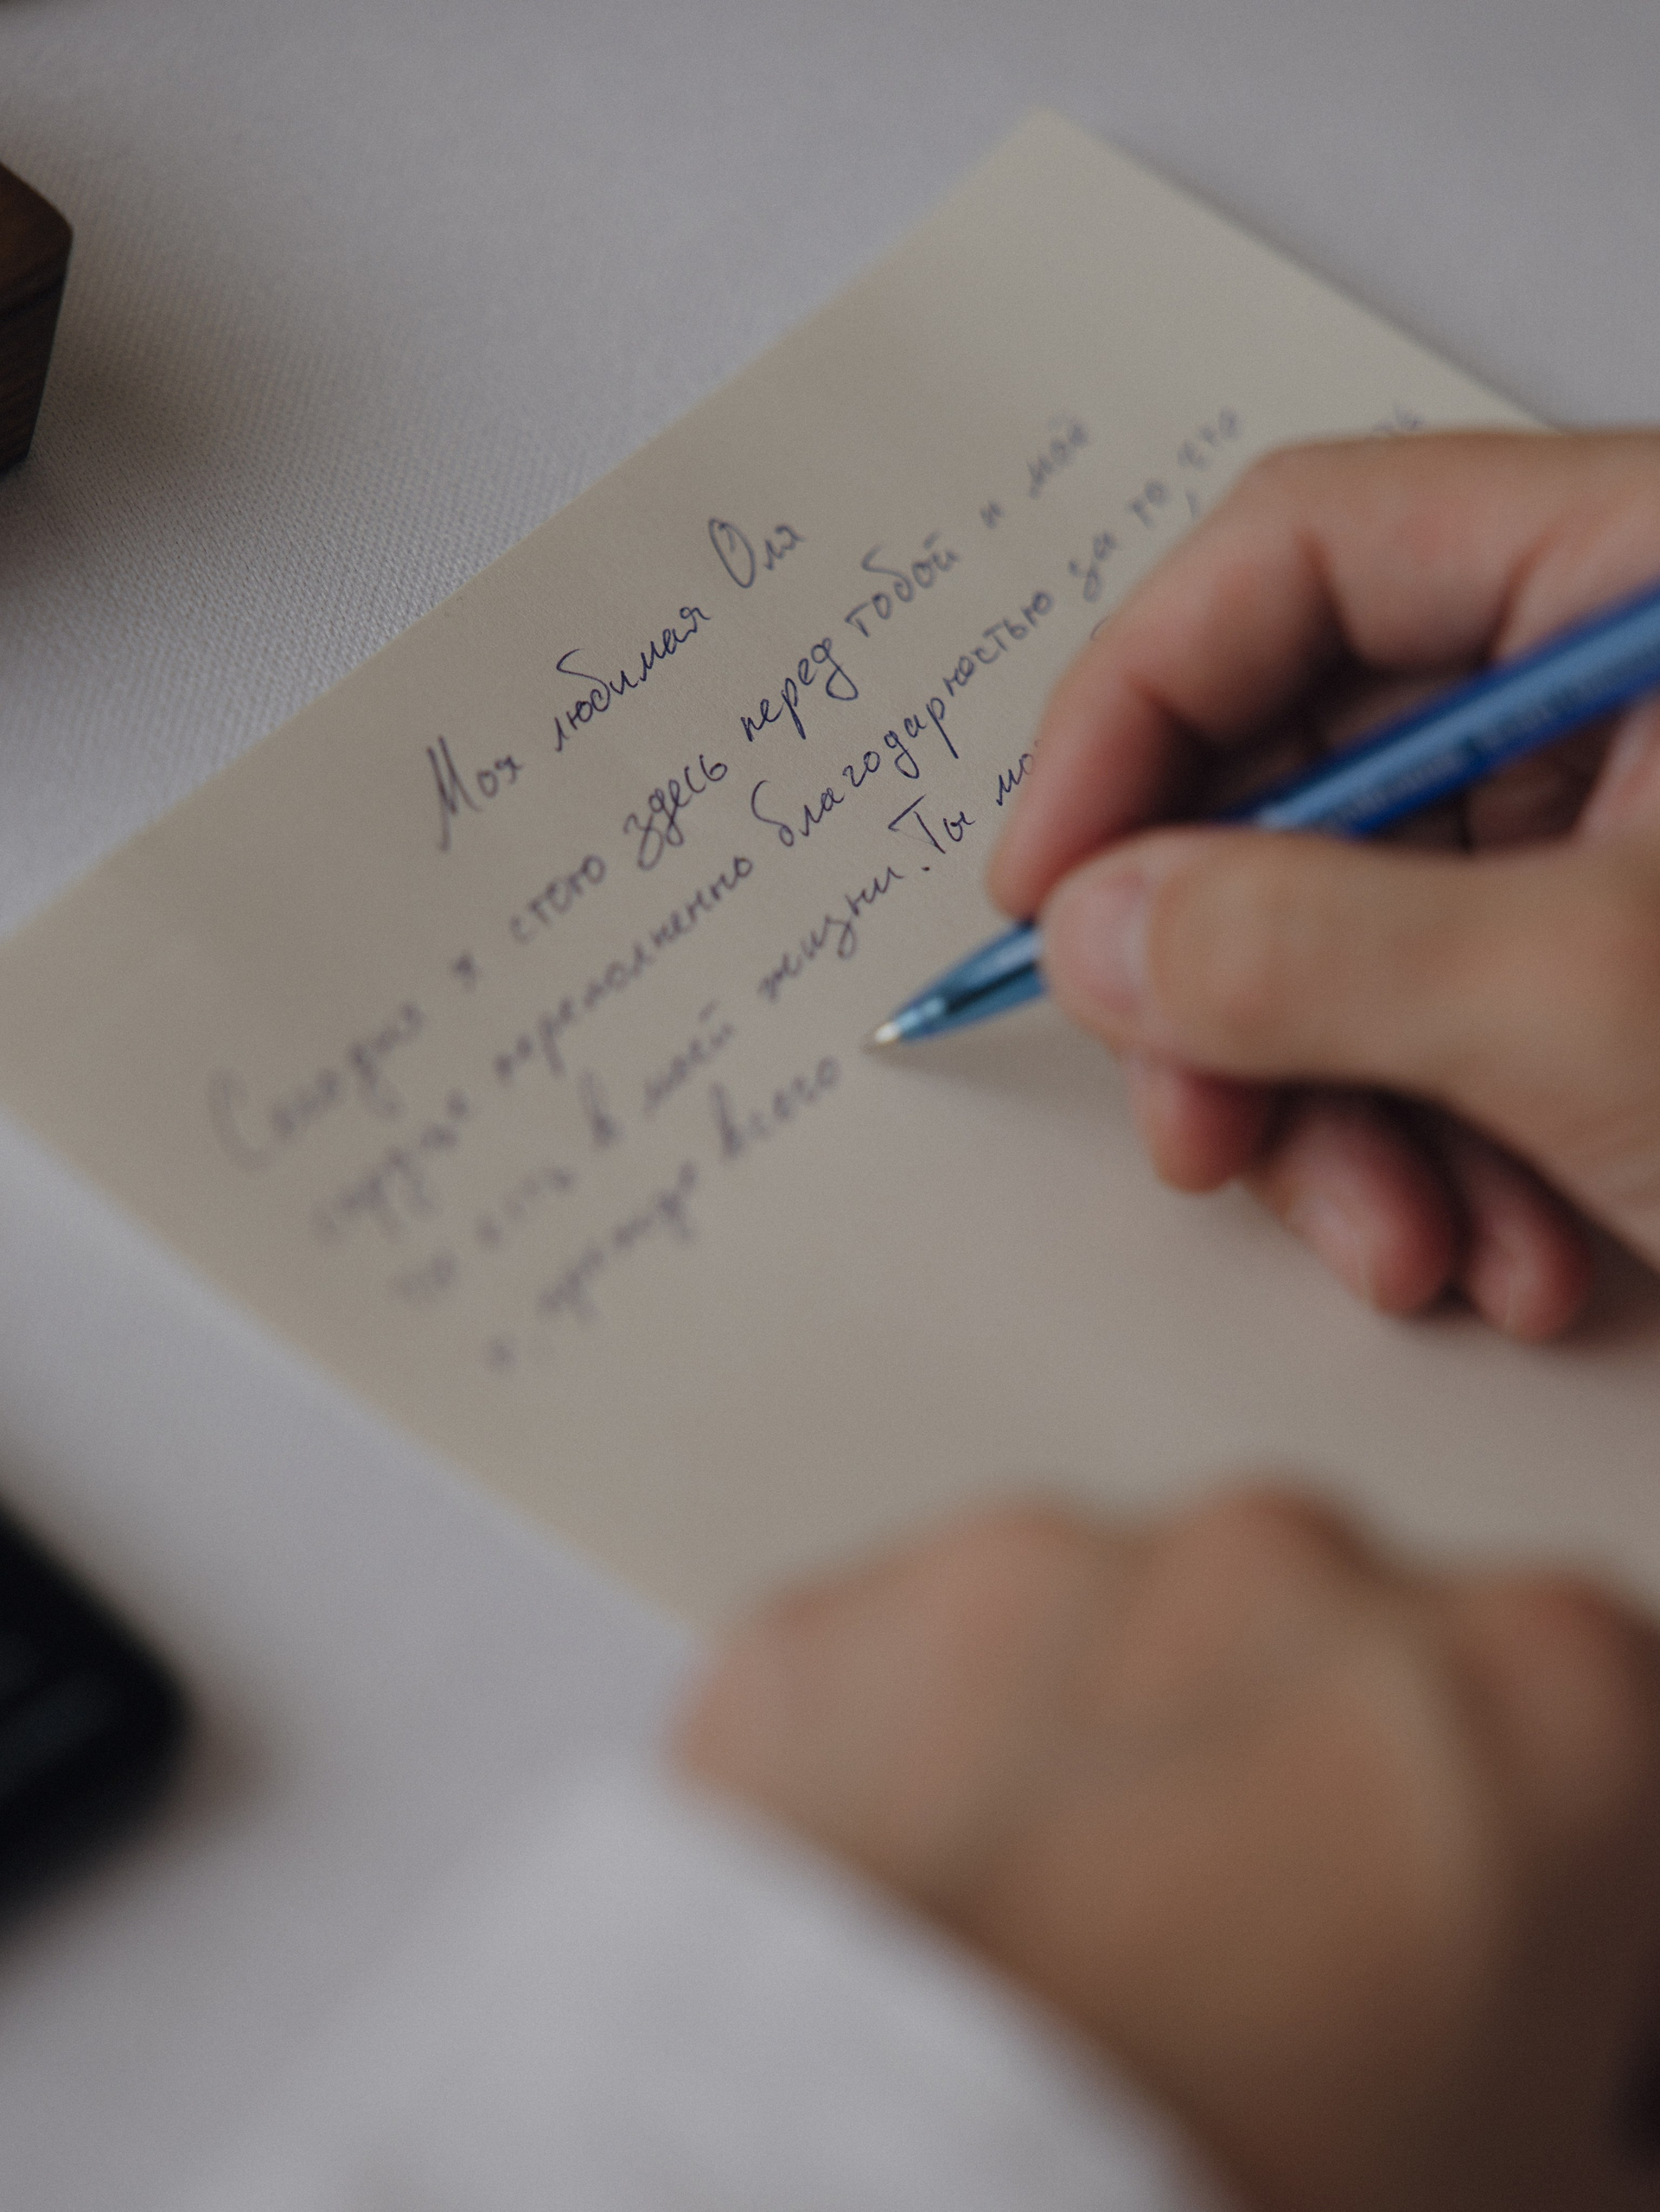 Моя любимая Оля
Сегодня я стою здесь перед тобой и моё
сердце переполненно благодарностью за то, что
ты есть в моей жизни. Ты
и прежде всего